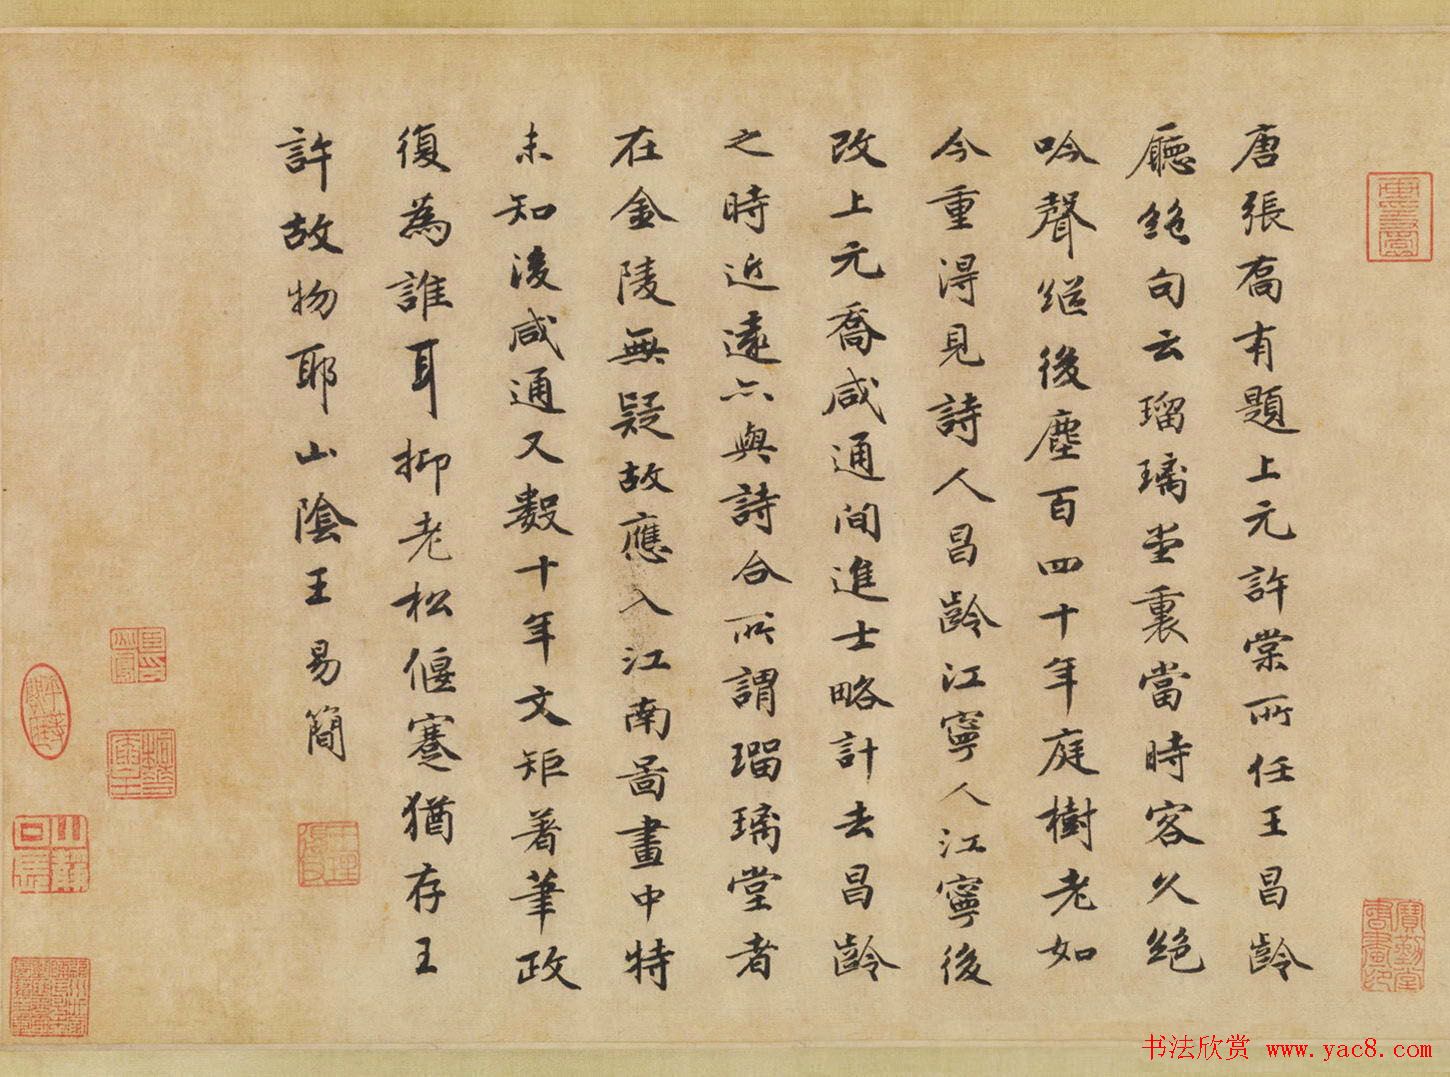 唐張喬有題上元許棠所任王昌齡
廳絶句云瑠璃堂裏當時客久絶
吟聲繼後塵百四十年庭樹老如
今重得見詩人昌齡江寧人江寧後
改上元喬咸通間進士略計去昌齡
之時近遠亦與詩合所謂瑠璃堂者
在金陵無疑故應入江南圖畫中特
未知後咸通又數十年文矩著筆政
復為誰耳抑老松偃蹇猶存王
許故物耶山陰王易簡
寶勤堂書畫印
王理得父
书法欣赏 www.yac8.com